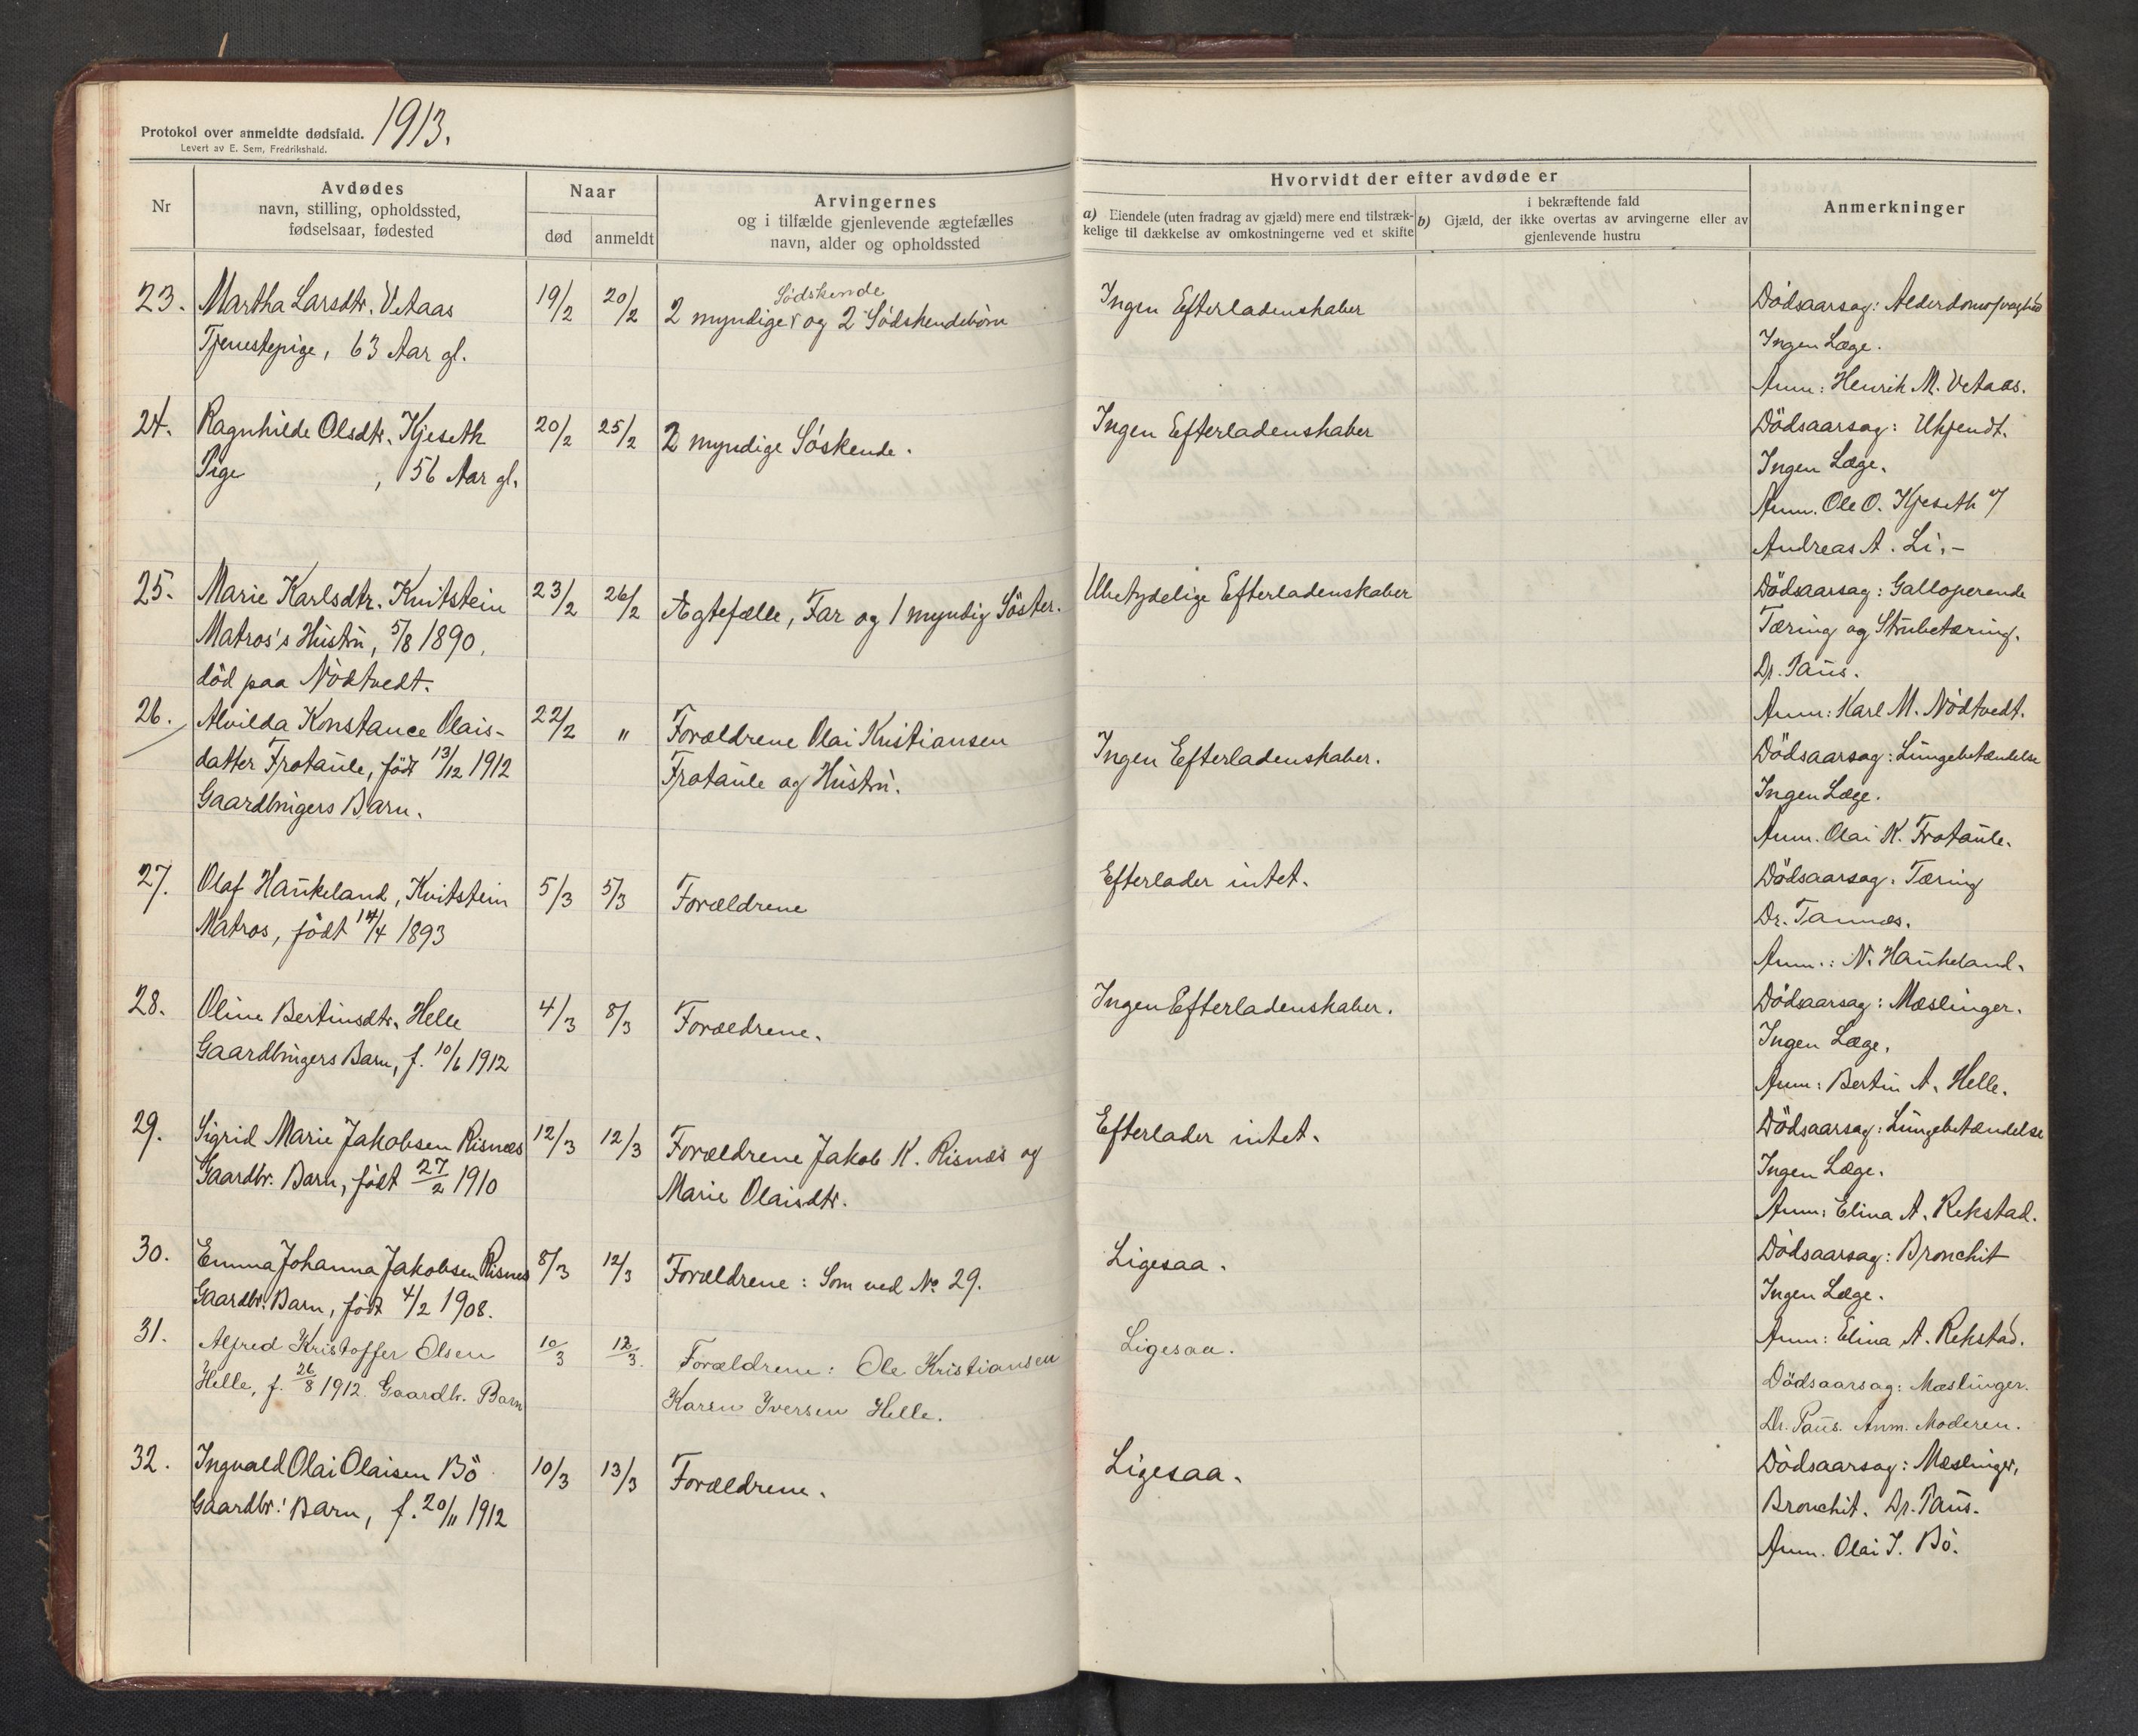 Protokol over anmeldte dødsfald. 1913.
Levert av E. Sem, Fredrikshald.
Nr
Avdødes
navn, stilling, opholdssted,
fødselsaar, fødested
Naar
død
anmeldt
Arvingernes
og i tilfælde gjenlevende ægtefælles
navn, alder og opholdssted
Hvorvidt der efter avdøde er
a) Eiendele (uten fradrag av gjæld) mere end tilstræk-
kelige til dækkelse av omkostningerne ved et skifte
i bekræftende fald
b) Gjæld, der ikke overtas av arvingerne eller av
gjenlevende hustru
Anmerkninger
23. Martha Larsdtr. Vetaas 19/2 20/2
Tjenestepige, 63 Aar gl.
Södskende
2 myndige og 2 Södskendebörn
Ingen Efterladenskaber
Dödsaarsag: Alderdomssvaghed
Ingen Læge.
Anm: Henrik M. Vetaas.
24. Ragnhilde Olsdtr. Kjeseth 20/2 25/2
Pige, 56 Aar gl.
2 myndige Söskende.
Ingen Efterladenskaber
Dödsaarsag: Ukjendt.
Ingen Læge.
Anm. Ole O. Kjeseth v/
Andreas A. Li.-
25. Marie Karlsdtr. Kvitstein 23/2 26/2
Matros's Hustru, 5/8 1890,
död paa Nödtvedt.
Ægtefælle, Far og 1 myndig Söster.
Ubetydelige Efterladenskaber
Dödsaarsag: Galloperende
Tæring og Strubetæring.
Dr. Paus.
Anm: Karl M. Nödtvedt.
26. Alvilda Konstance Olais- 22/2 "
datter Frotaule, födt 13/12 1912
Gaardbrugers Barn.
Forældrene Olai Kristiansen
Frotaule og Hustru.
Ingen Efterladenskaber.
Dödsaarsag: Lungebetændelse
Ingen Læge.
Anm. Olai K. Frotaule.
27. Olaf Haukeland, Kvitstein 5/3 5/3
Matros, födt 14/4 1893
Forældrene
Efterlader intet.
Dödsaarsag. Tæring
Dr. Tannæs.
Anm.: N. Haukeland.
28. Oline Bertinsdtr. Helle 4/3 8/3
Gaardbrugers Barn, f. 10/6 1912
Forældrene.
Ingen Efterladenskaber.
Dödsaarsag: Mæslinger.
Ingen Læge.
Anm: Bertin A. Helle.
29. Sigrid Marie Jakobsen Risnes 12/3 12/3
Gaardbr. Barn, födt 27/2 1910
Forældrene Jakob K. Risnes og
Marie Olaisdtr.
Efterlader intet.
Dödsaarsag: Lungebetændelse
Ingen Læge.
Anm: Elina A. Rekstad.
30. Emma Johanna Jakobsen Risnes 8/3 12/3
Gaardbr. Barn, födt 4/2 1908.
Forældrene: Som ved No. 29.
Ligesaa.
Dödsaarsag: Bronchit
Ingen Læge.
Anm: Elina A. Rekstad.
31. Alfred Kristoffer Olsen 10/3 12/3.
Helle, f. 26/8 1912. Gaardbr. Barn
Forældrene: Ole Kristiansen
Karen Iversen Helle.
Ligesaa.
Dödsaarsag: Mæslinger.
Dr. Paus. Anm. Moderen.
32. Ingvald Olai Olaisen Bö 10/3 13/3
Gaardbr. Barn, f. 20/11 1912
Forældrene.
Ligesaa.
Dödsaarsag: Mæslinger,
Bronchit. Dr. Paus.
Anm. Olai J. Bö.